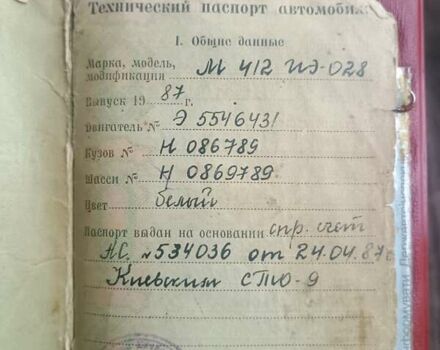 Технический паспорт автомобиля
I. Общие данные
Марка, модель,
модификация М 412 ИЭ-028
Выпуск 1987 г.
Двигатель № Э 5546431
Кузов № Н 086789
Шасси № Н 0869789
Цвет белый
Паспорт выдан на основании спр. счет
АС. №534036 от 24.04.87г
Киевским СТО-9